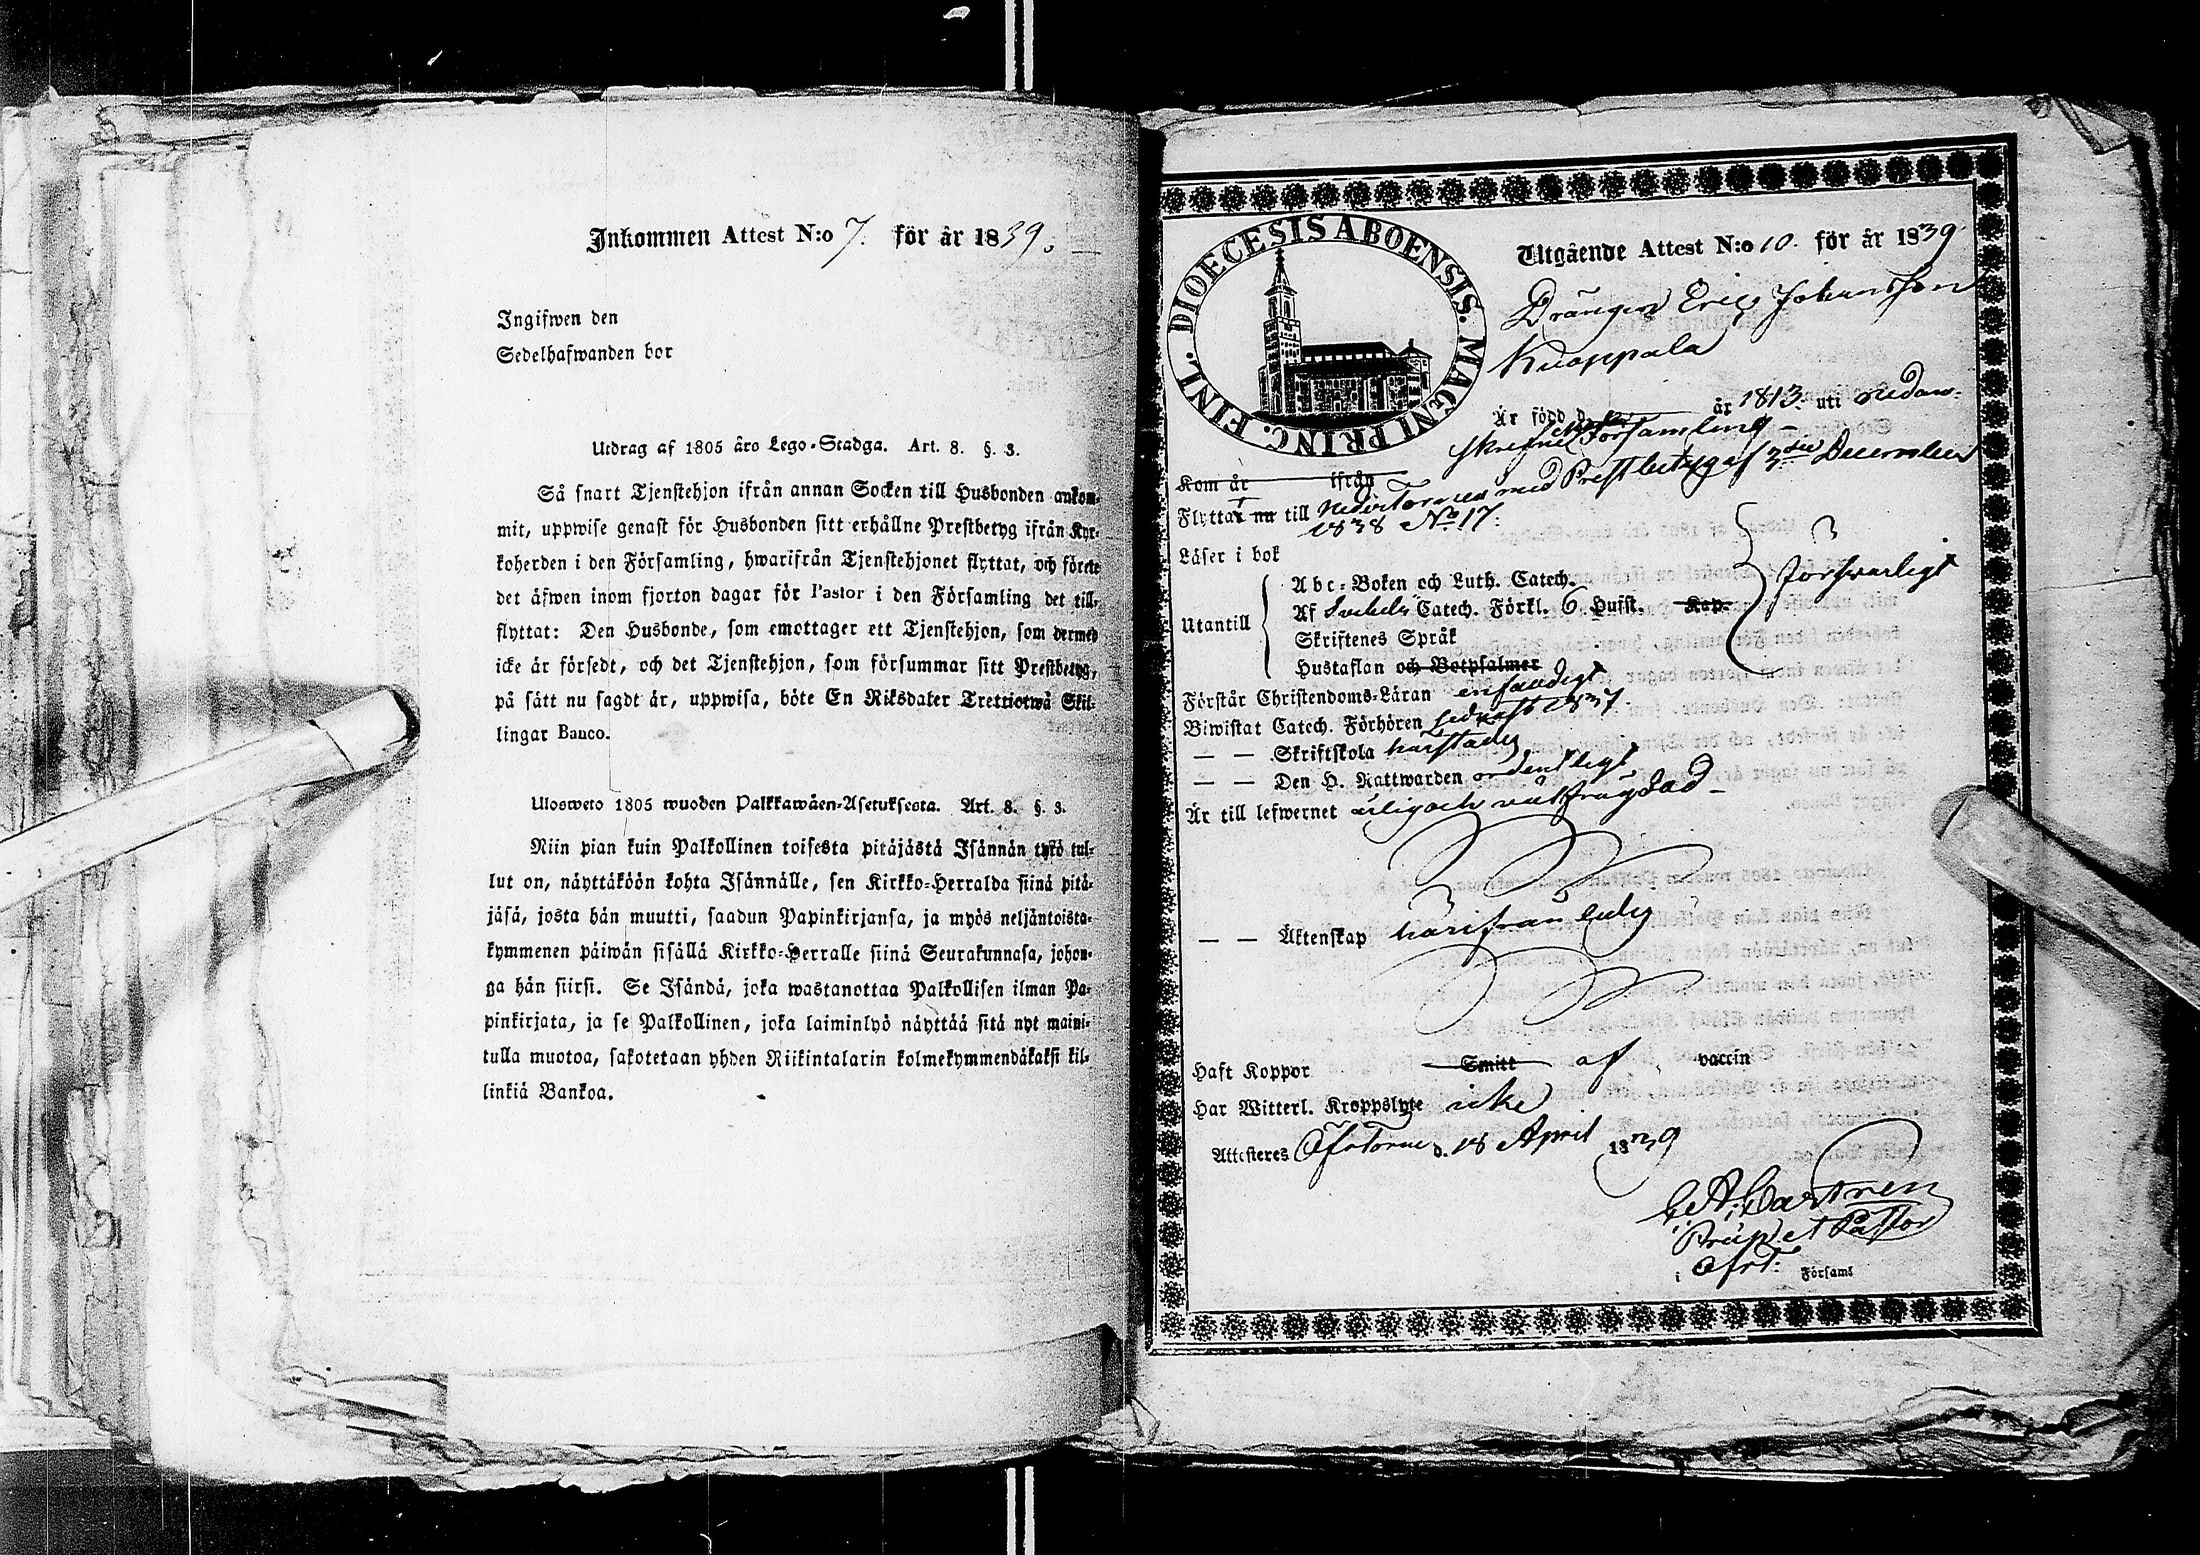 Inkommen Attest N:o 7. för år 1839.
Ingifwen den
Sedelhafwanden bor
Utdrag af 1805 års Lego-Stadga. Art. 8. §. 3.
Så snart Tjenstehjon ifrån annan Socken till Husbonden ankom-
mit, uppwise genast för Husbonden sitt erhållne Prestbetyg ifrån Kyr-
koherden i den Församling, hwarifrån Tjenstehjonet flyttat, och förete
det äfwen inom fjorton dagar för Pastor i den Församling det till-
flyttat: Den Husbonde, som emottager ett Tjenstehjon, som dermed
icke är försedt, och det Tjenstehjon, som försummar sitt Prestbetyg,
på sätt nu sagdt är, uppwisa, böte En Riksdaler Trettiotwå Skil-
lingar Banco.
Ulosweto 1805 wuoden Palkkawäen-Asetuksesta. Art. 8. §. 3.
Niin pian kuin Palkollinen toisesta pitäjästä Isännän tykö tul-
lut on, näyttäköön kohta Isännälle, sen Kirkko-Herralda siinä pitä-
jäsä, josta hän muutti, saadun Papinkirjansa, ja myös neljäntoista-
kymmenen päiwän sisällä Kirkko-Herralle siinä Seurakunnasa, johon-
ga hän siirsi. Se Isändä, joka wastanottaa Palkollisen ilman Pa-
pinkirjata, ja se Palkollinen, joka laiminlyö näyttää sitä nyt maini-
tulla muotoa, sakotetaan yhden Riikintalarin kolmekymmendäkaksi kil-
linkiä Bankoa.
DIOECESIS ABOENSIS. MAGNI PRINC. FINL.
Utgående Attest N:o 10. för år 1839
Drängen Eric Johansson
Kuoppala
Är född d. år 1813. uti nedan-
skrefne Församling
Kom år ifrån
Flyttat nu till Nedertorneå med Prestbetyg af 3die December
1838 No 17.
Läser i bok
Utantill
Abc-Boken och Luth. Catech.
Af Svebelii Catech. Förkl. 6 Hufst. Kap.
Skriftenes Språk
Hustaflan och Botpsalmer
försvarligt
Förstår Christendoms-Läran enfaldigt
Biwistat Catech. Förhören sednast 1837.
— — Skriftskola härstädes
— — Den H. Nattwarden ordentligt
Är till lefwernet ärlig och välfrägdad
— — Äktenskap härifrån ledig
Haft Koppor Smitt af vaccin
Har Witterl. Kroppslyte icke
Attesteres Öfvertorneå d. 18 April 1839
Castrén
Præp. et Pastor
i Öfvt: Församl